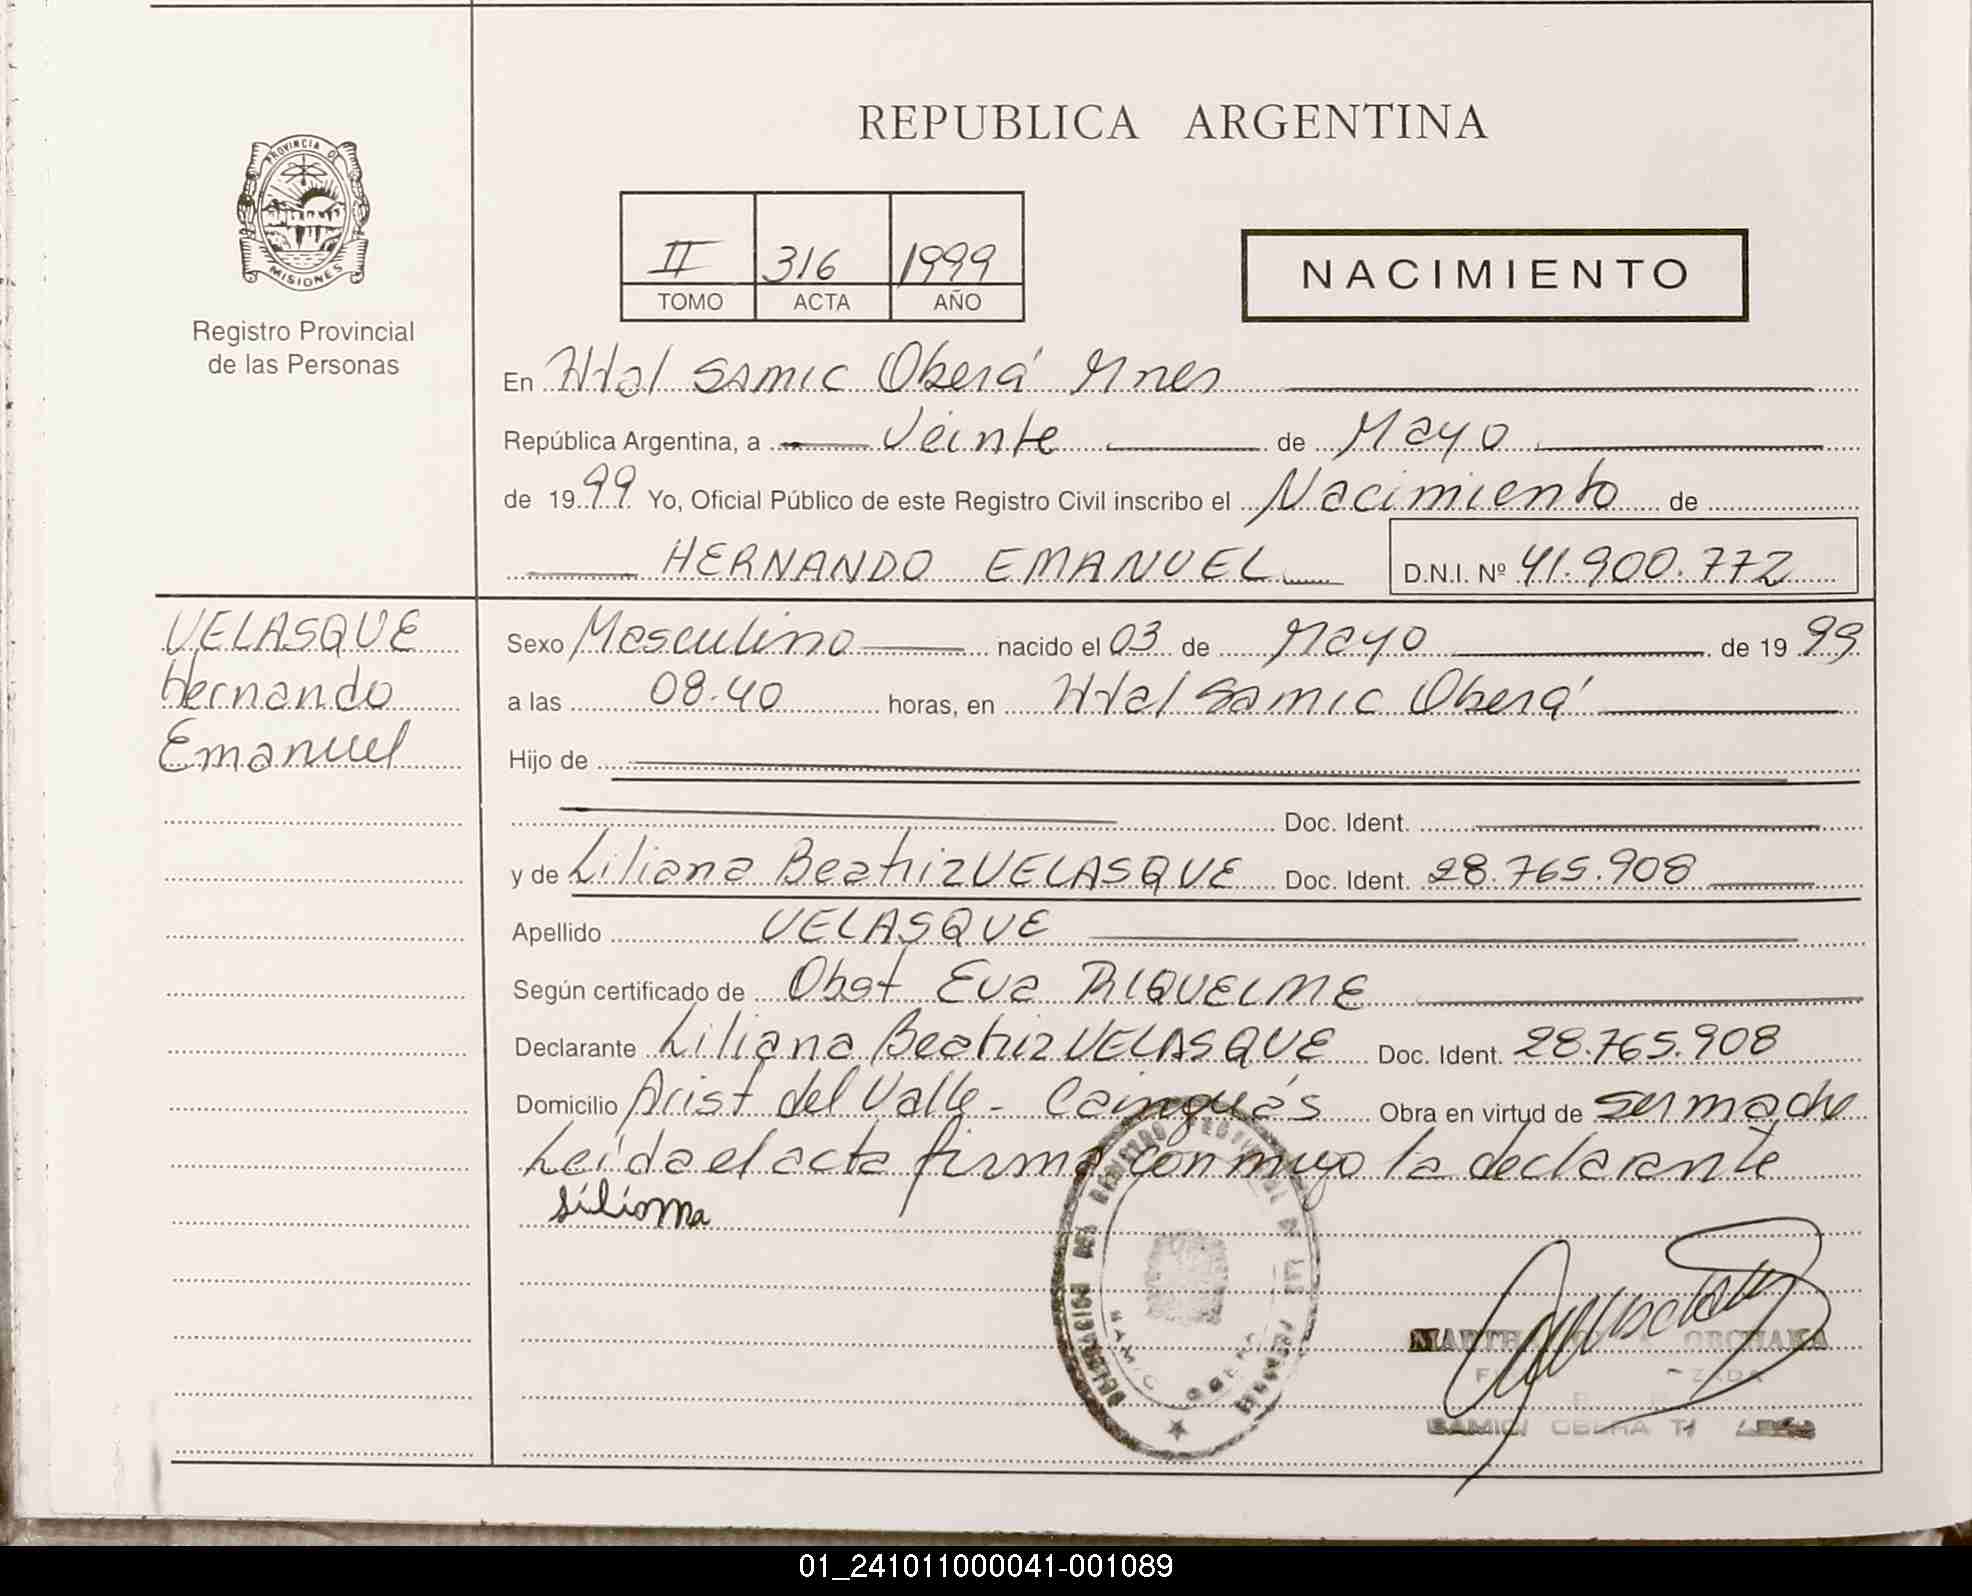 REPUBLICA ARGENTINA
PROVINCIA DE
MISIONES
Registro Provincial
de las Personas
II 316 1999
TOMO ACTA AÑO
NACIMIENTO
En Htal SAMIC Oberá Mnes
República Argentina, a Veinte de Mayo
de 1999 Yo, Oficial Público de este Registro Civil inscribo el Nacimiento de
HERNANDO EMANUEL D.N.I. Nº 41.900.772
VELASQUE
Hernando
Emanuel
Sexo Masculino nacido el 03 de Mayo de 1999
a las 08.40 horas, en Htal Samic Oberá
Hijo de
Doc. Ident.
y de Liliana Beatriz VELASQUE Doc. Ident. 28.765.908
Apellido VELASQUE
Según certificado de Obst Eva RIQUELME
Declarante Liliana Beatriz VELASQUE Doc. Ident. 28.765.908
Domicilio Arist del Valle - Cainguás Obra en virtud de ser madre
Leída el acta firma conmigo la declarante
Liliana
SAMIC OBERA
01_241011000041-001089